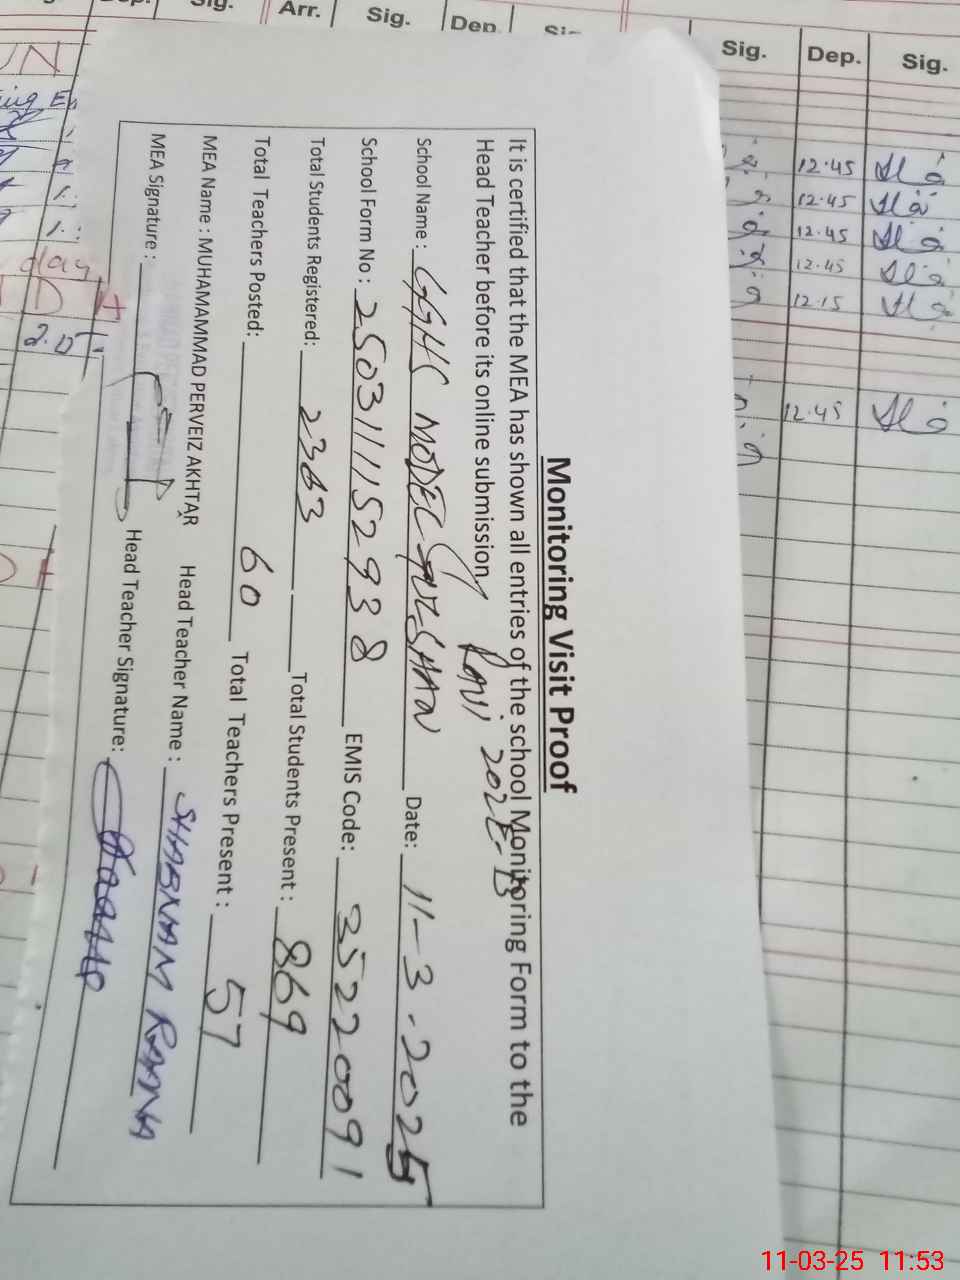 Sig. Arr. Sig. Dep. Sig. Dep. Sig.
12.45
12.45
12.45
12.45
12.15
12.45
Monitoring Visit Proof
It is certified that the MEA has shown all entries of the school Monitoring Form to the
Head Teacher before its online submission.
School Name : GGHS MODEL GULSHAN RAVI Date: 11-3-2025
School Form No : 250311152938 EMIS Code: 35220091
Total Students Registered: 2363 Total Students Present : 869
Total Teachers Posted: 60 Total Teachers Present : 57
MEA Name : MUHAMAMMAD PERVEIZ AKHTAR Head Teacher Name : SHABNAM RANA
MEA Signature : Head Teacher Signature:
11-03-25 11:53